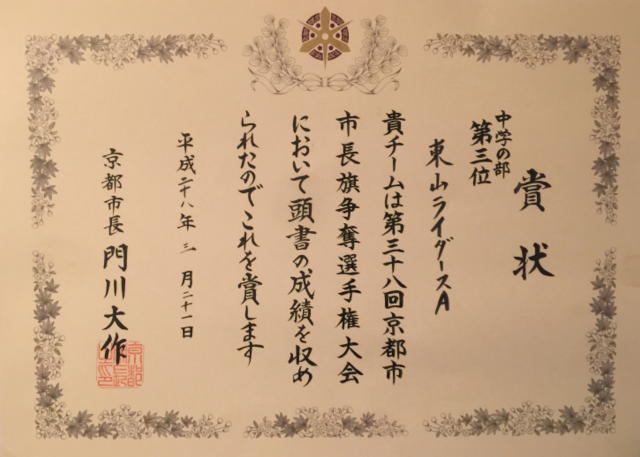 賞状
中学の部
第三位
東山ライダースA
貴チームは第三十八回京都市
市長旗争奪選手権大会
において頭書の成績を収め
られたのでこれを賞します
平成二十八年三月二十一日
京都市長 門川大作